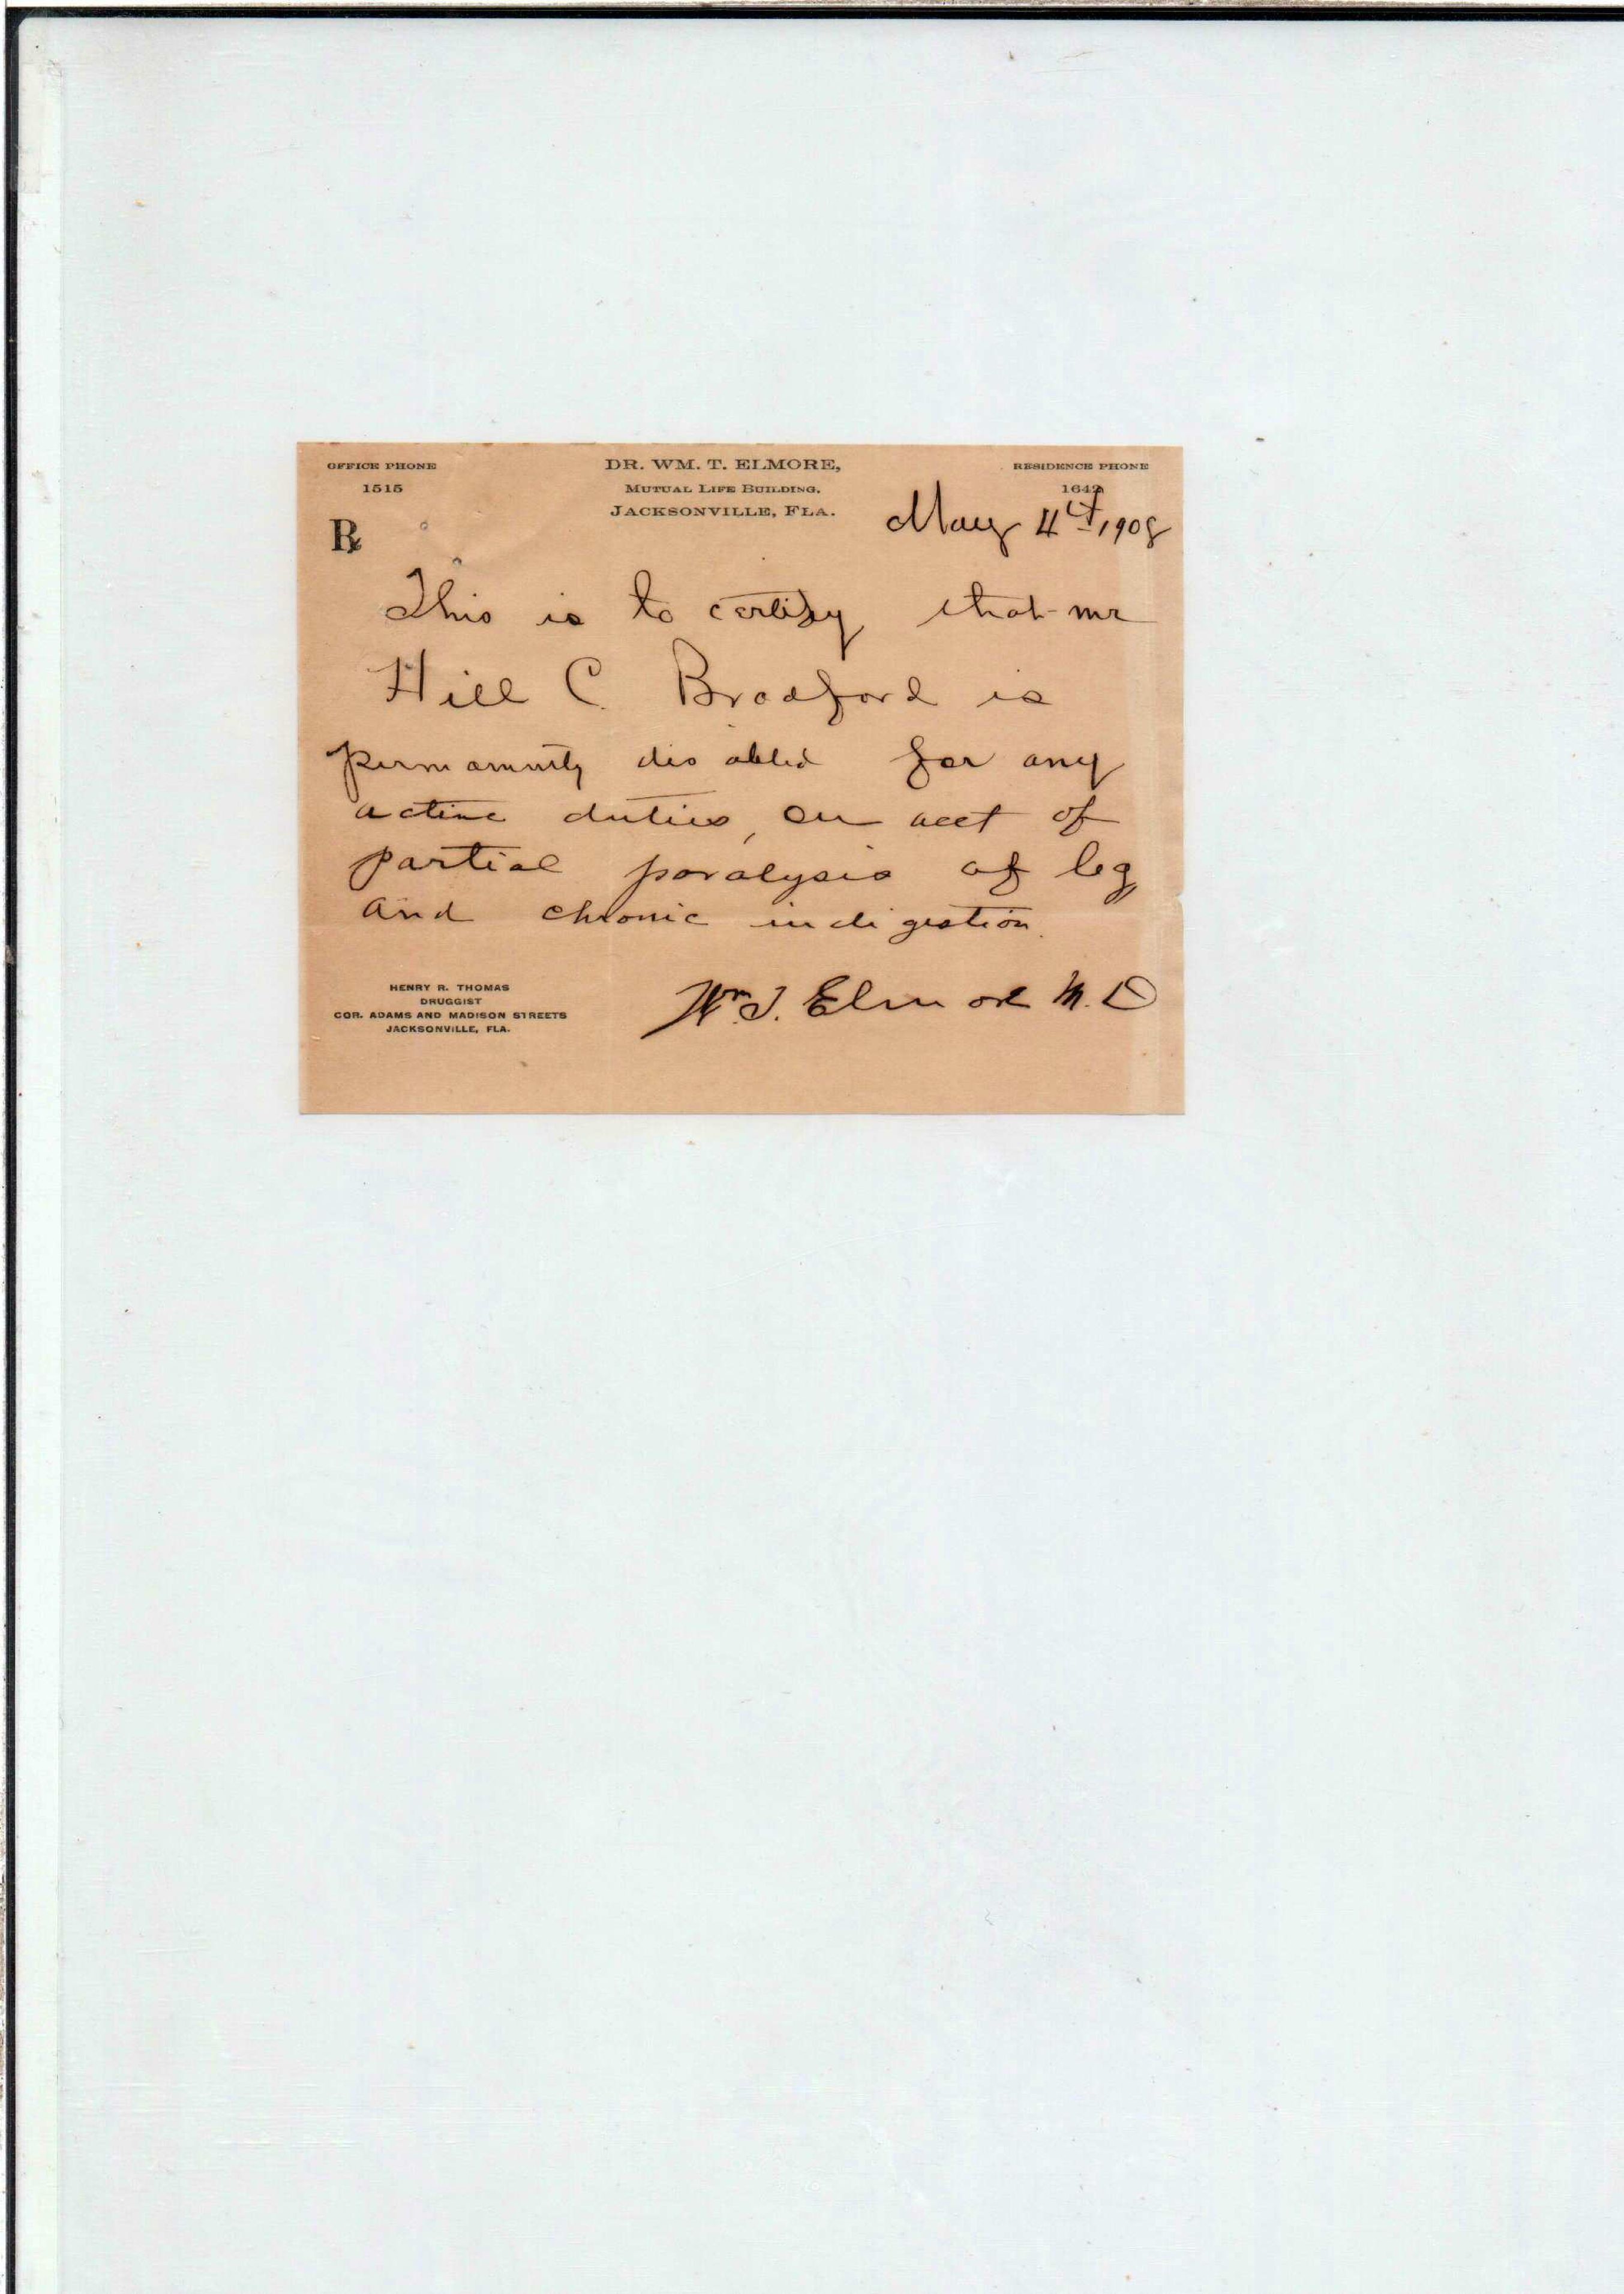 OFFICE PHONE
1515
DR. WM. T. ELMORE,
MUTUAL LIFE BUILDING.
JACKSONVILLE, FLA.
RESIDENCE PHONE
1642
May 4th, 1908
℞
This is to certify that mr
Hill C. Bradford is
permanently disabled for any
active duties, on acct of
partial paralysis of leg,
and chronic indigestion.
Wm. T. Elmore M.D
HENRY R. THOMAS
DRUGGIST
COR. ADAMS AND MADISON STREETS
JACKSONVILLE, FLA.